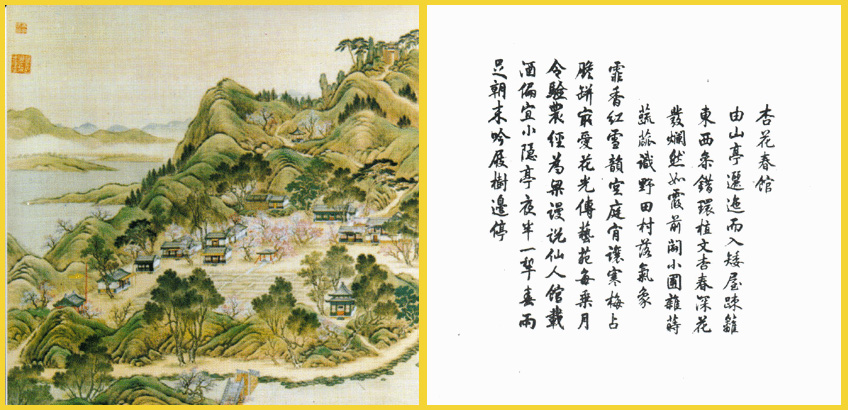 杏花春館
由山亭邐迤而入矮屋疎籬
東西參錯環植文杏春深花
發爛然如霞前闢小圃雜蒔
蔬蓏識野田村落氣象
霏香紅雪韻空庭肯讓寒梅占
膽缾最愛花光傳藝苑每乘月
令驗農經為梁謾說仙人館載
酒偏宜小隱亭夜半一犂春雨
足朝来吟屐樹邊停